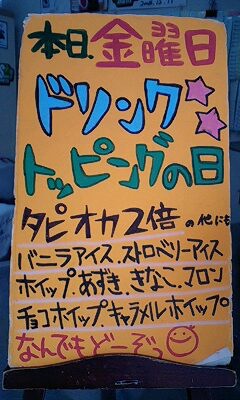 本日、金曜日
ドリンク
トッピングの日
タピオカ2倍の他にも
バニラアイス.ストロベリーアイス
ホイップ.あずき.きなこ.マロン
チョコホイップ.キャラメルホイップ
なんでもどーぞっ